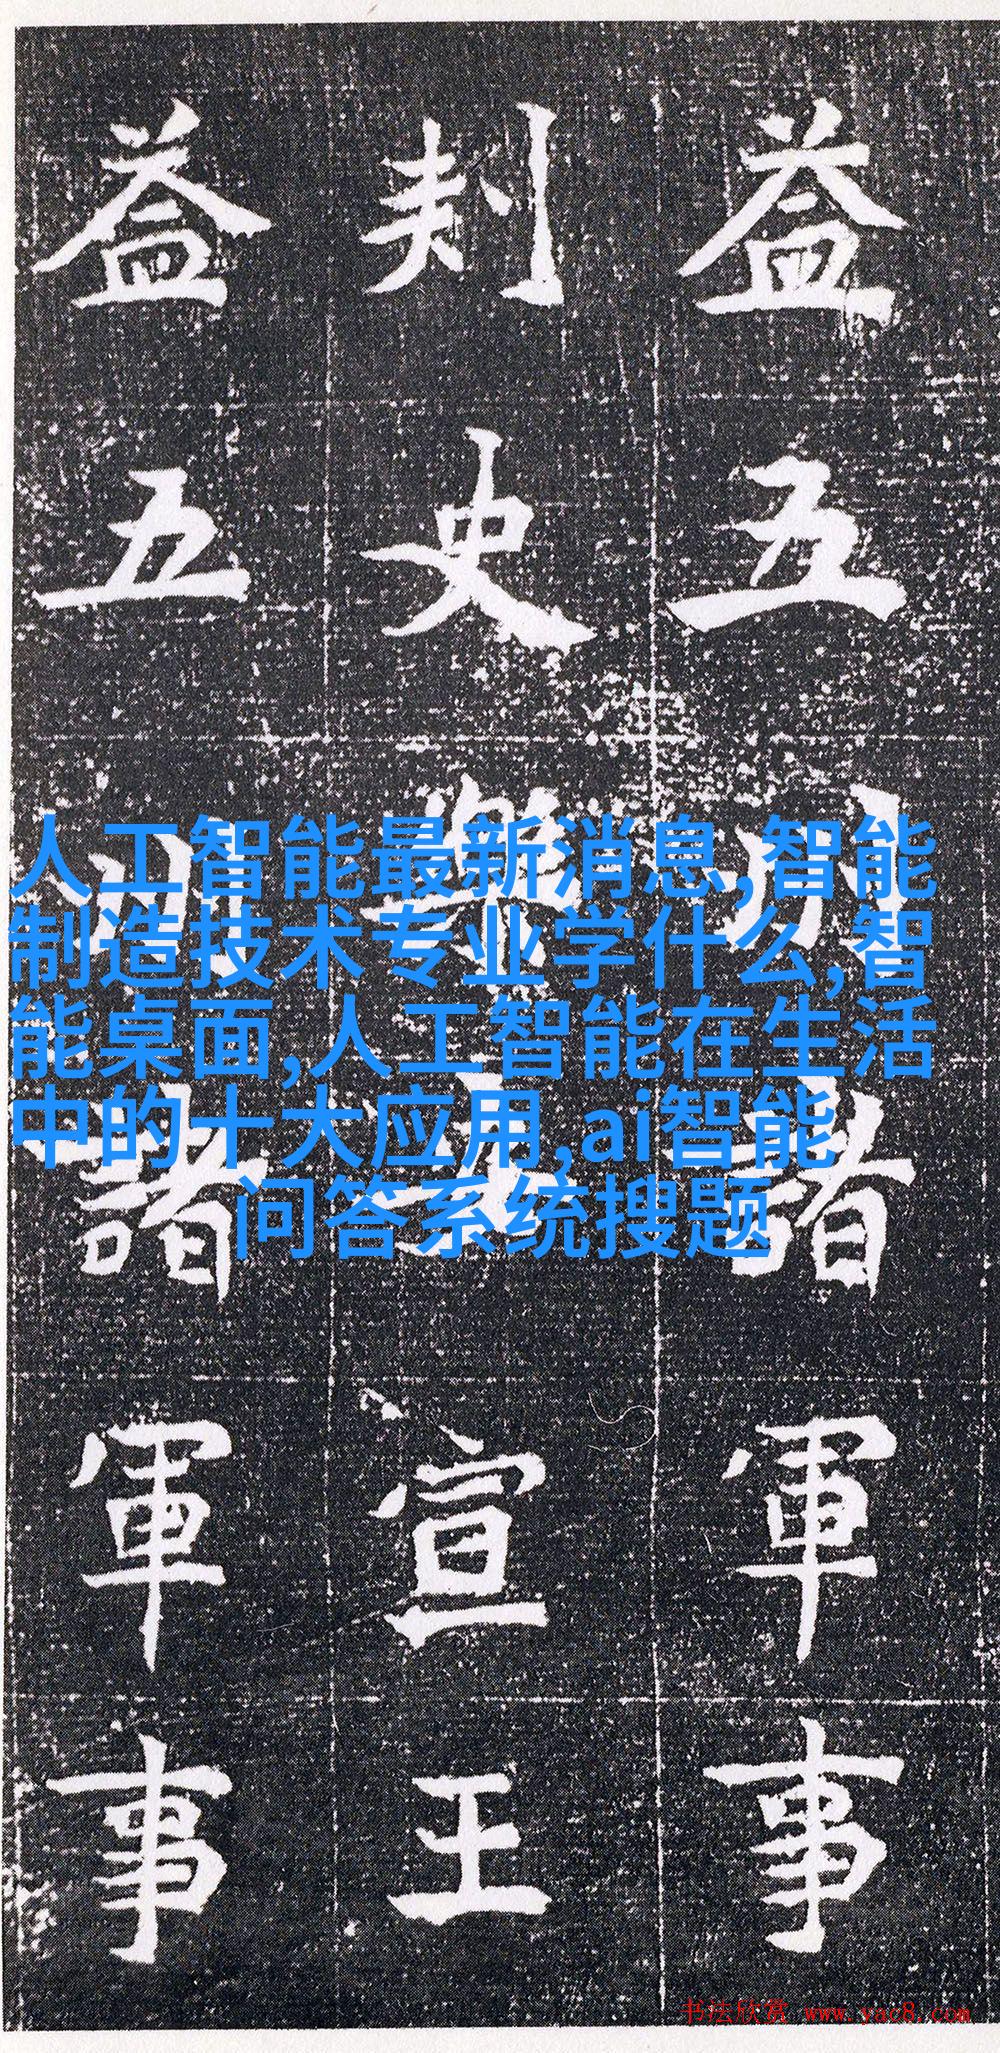 益五州諸軍事
刺史樂宣王
益五州諸軍事
人工智能最新消息,智能
制造技术专业学什么,智
能桌面,人工智能在生活
中的十大应用,ai智能
问答系统搜题
书法欣赏 www.yac8.com